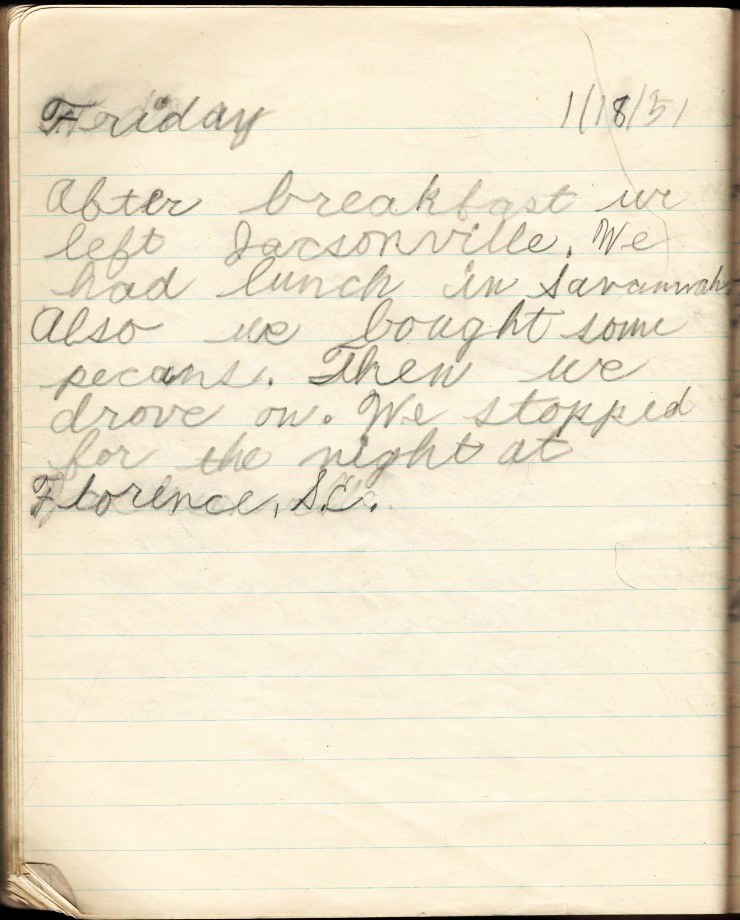 Friday 1/18/51
After breakfast we
left Jacsonville. We
had lunch in Savannah
Also we bought some
pecans. Then we
drove on. We stopped
for the night at
Florence, S.C.